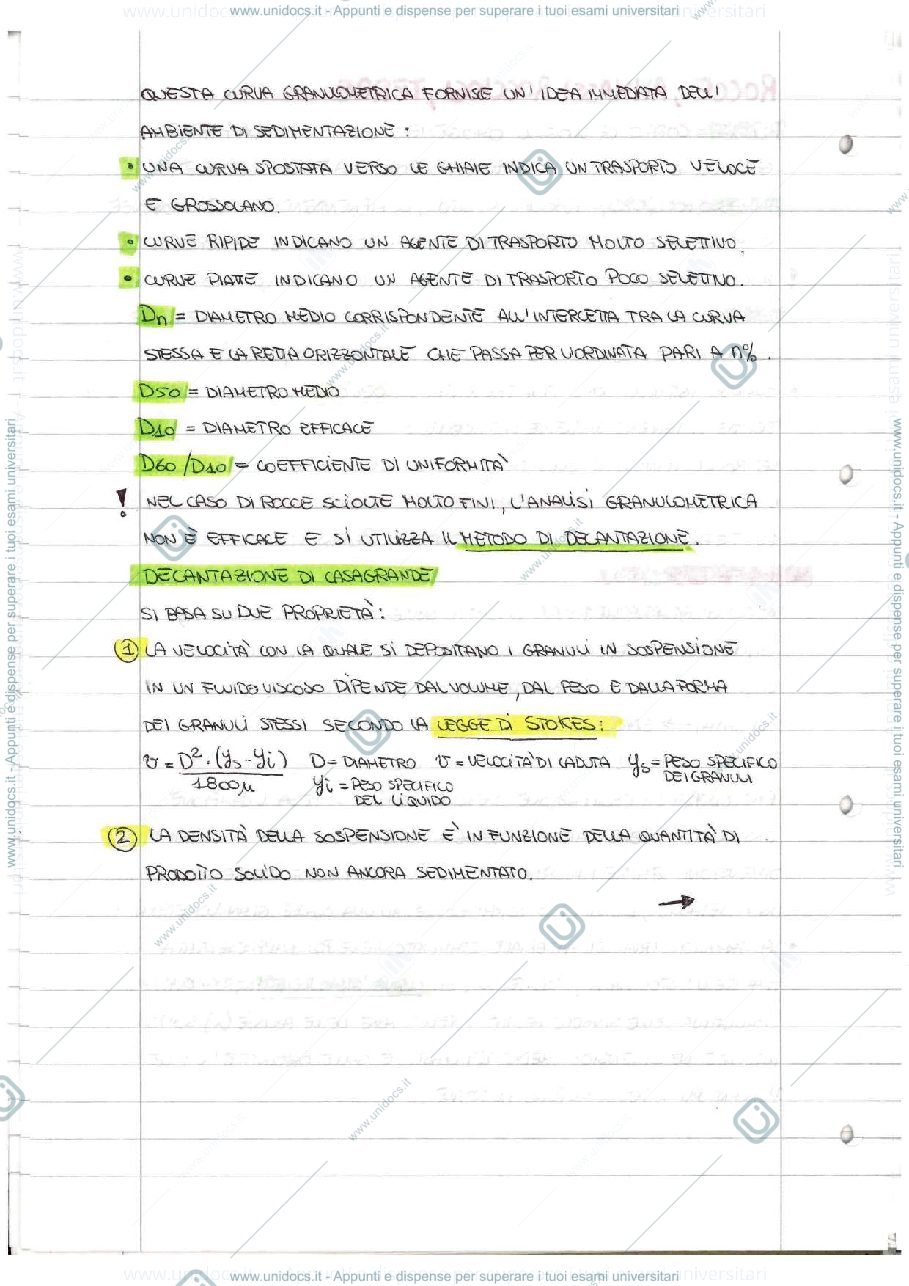 www.unidocs.it - Appunti e dispense per superare i tuoi esami universitari
QUESTA CURVA GRANULOMETRICA FORNISCE UN'IDEA IMMEDIATA DELL'
AMBIENTE DI SEDIMENTAZIONE :
• UNA CURVA SPOSTATA VERSO LE GHIAIE INDICA UN TRASPORTO VELOCE
E GROSSOLANO.
• CURVE RIPIDE INDICANO UN AGENTE DI TRASPORTO MOLTO SELETTIVO.
• CURVE PIATTE INDICANO UN AGENTE DI TRASPORTO POCO SELETTIVO.
Dn = DIAMETRO MEDIO CORRISPONDENTE ALL'INTERCETTA TRA LA CURVA
STESSA E LA RETTA ORIZZONTALE CHE PASSA PER L'ORDINATA PARI A n%.
D50 = DIAMETRO MEDIO
D10 = DIAMETRO EFFICACE
D60/D10 = COEFFICIENTE DI UNIFORMITÀ
! NEL CASO DI ROCCE SCIOLTE MOLTO FINI, L'ANALISI GRANULOMETRICA
NON È EFFICACE E SI UTILIZZA IL METODO DI DECANTAZIONE.
DECANTAZIONE DI CASAGRANDE
SI BASA SU DUE PROPRIETÀ:
1 LA VELOCITÀ CON LA QUALE SI DEPOSITANO I GRANULI IN SOSPENSIONE
IN UN FLUIDO VISCOSO DIPENDE DAL VOLUME, DAL PESO E DALLA FORMA
DEI GRANULI STESSI SECONDO LA LEGGE DI STOKES:
v = D²·(γs-γi) / 1800μ D = DIAMETRO v = VELOCITÀ DI CADUTA γs = PESO SPECIFICO DEI GRANULI
γi = PESO SPECIFICO DEL LIQUIDO
2 LA DENSITÀ DELLA SOSPENSIONE E' IN FUNZIONE DELLA QUANTITÀ DI
PRODOTTO SOLIDO NON ANCORA SEDIMENTATO.
→
www.unidocs.it - Appunti e dispense per superare i tuoi esami universitari
www.unidocs.it - Appunti e dispense per superare i tuoi esami universitari
www.unidocs.it - Appunti e dispense per superare i tuoi esami universitari